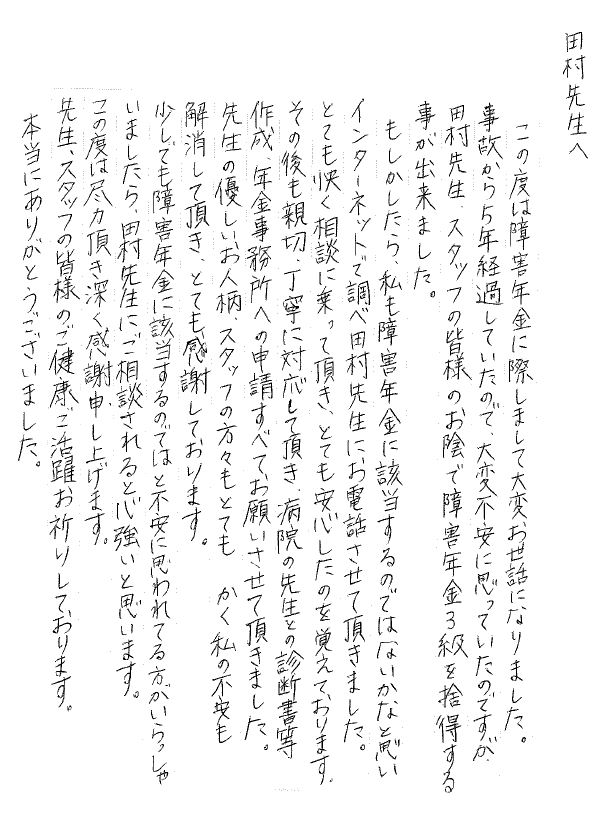 田村先生へ
この度は障害年金に際しまして大変お世話になりました。
事故から5年経過していたので、大変不安に思っていたのですが、
田村先生、スタッフの皆様のお陰で障害年金3級を捨得する
事が出来ました。
もしかしたら、私も障害年金に該当するのではないかなと思い
インターネットで調べ田村先生にお電話させて頂きました。
とても快く相談に乗って頂き、とても安心したのを覚えております。
その後も親切、丁寧に対応して頂き、病院の先生との診断書等
作成、年金事務所への申請すべてお願いさせて頂きました。
先生の優しいお人柄、スタッフの方々もとても かく私の不安も
解消して頂き、とても感謝しております。
少しでも障害年金に該当するのではと不安に思われてる方がいらっしゃ
いましたら、田村先生にご相談されると心強いと思います。
この度は尽力頂き深く感謝申し上げます。
先生、スタッフの皆様のご健康ご活躍お祈りしております。
本当にありがとうございました。